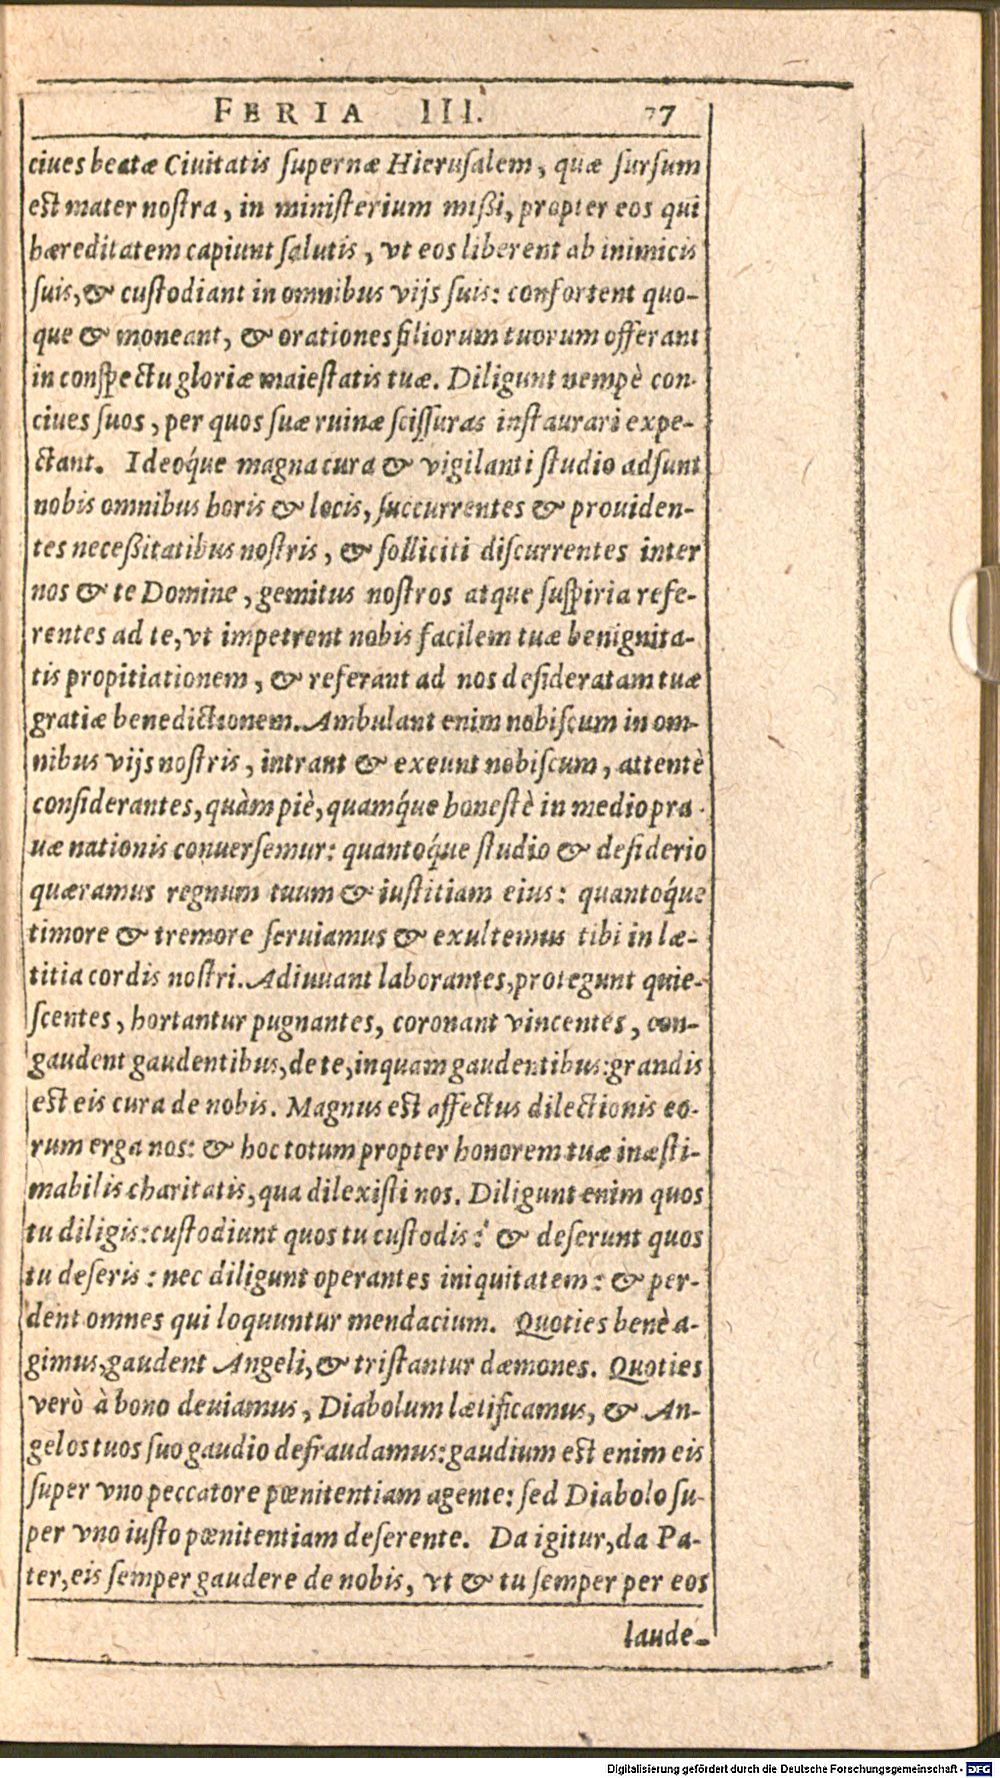 FERIA III. 77
ciues beatæ Ciuitatis supernæ Hierusalem, quæ sursum
est mater nostra, in ministerium mißi, propter eos qui
hæreditatem capiunt salutis, vt eos liberent ab inimicis
suis, & custodiant in omnibus vijs suis: confortent quo-
que & moneant, & orationes filiorum tuorum offerant
in conspectu gloriæ maiestatis tuæ. Diligunt nempè con-
ciues suos, per quos suæ ruinæ scissuras instaurari expe-
ctant. Ideoq́ue magna cura & vigilanti studio adsunt
nobis omnibus horis & locis, succurrentes & prouiden-
tes neceßitatibus nostris, & solliciti discurrentes inter
nos & te Domine, gemitus nostros atque suspiria refe-
rentes ad te, vt impetrent nobis facilem tuæ benignita-
tis propitiationem, & referant ad nos desideratam tuæ
gratiæ benedictionem. Ambulant enim nobiscum in om-
nibus vijs nostris, intrant & exeunt nobiscum, attentè
considerantes, quàm piè, quamq́ue honestè in medio pra-
uæ nationis conuersemur: quantoq́ue studio & desiderio
quæramus regnum tuum & iustitiam eius: quantoq́ue
timore & tremore seruiamus & exultemus tibi in læ-
titia cordis nostri. Adiuuant laborantes, protegunt quie-
scentes, hortantur pugnantes, coronant vincentes, con-
gaudent gaudentibus, de te, inquam gaudentibus: grandis
est eis cura de nobis. Magnus est affectus dilectionis eo-
rum erga nos: & hoc totum propter honorem tuæ inæsti-
mabilis charitatis, qua dilexisti nos. Diligunt enim quos
tu diligis: custodiunt quos tu custodis: & deserunt quos
tu deseris: nec diligunt operantes iniquitatem: & per-
dent omnes qui loquuntur mendacium. Quoties benè a-
gimus, gaudent Angeli, & tristantur dæmones. Quoties
verò à bono deuiamus, Diabolum lætificamus, & An-
gelos tuos suo gaudio defraudamus: gaudium est enim eis
super vno peccatore pœnitentiam agente: sed Diabolo su-
per vno iusto pœnitentiam deserente. Da igitur, da Pa-
ter, eis semper gaudere de nobis, vt & tu semper per eos
laude-
Digitalisierung gefördert durch die Deutsche Forschungsgemeinschaft - DFG